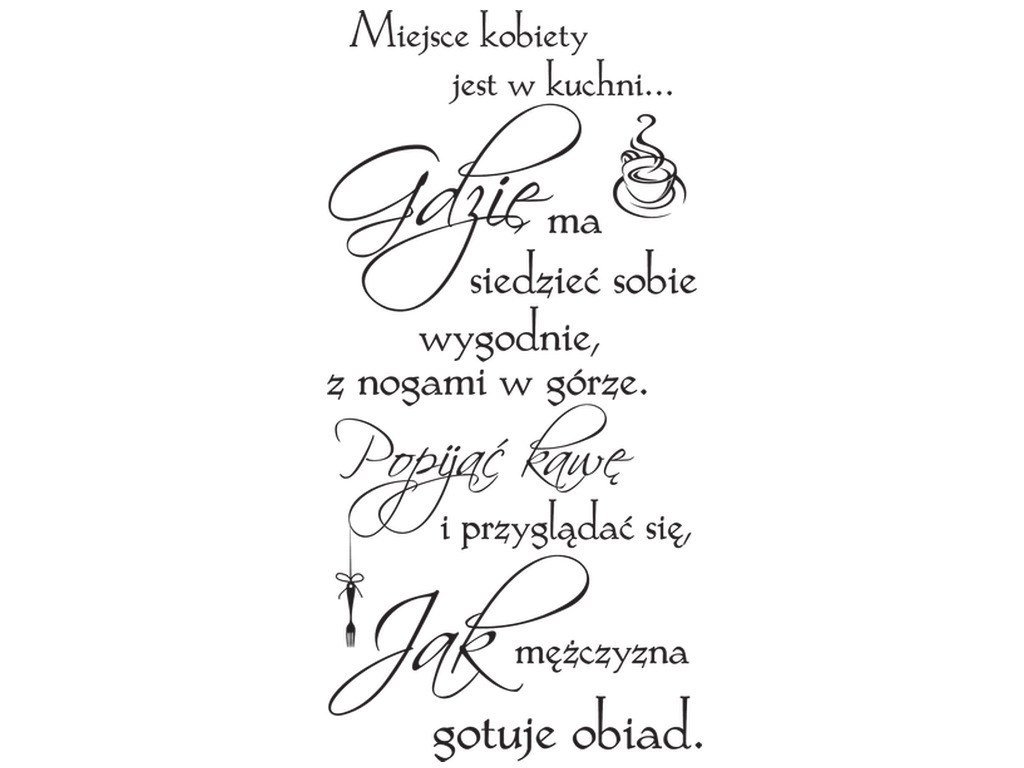 Miejsce kobiety
jest w kuchni...
Gdzię ma
siedzieć sobie
wygodnie,
z nogami w górze.
Popijać kawę
i przyglądać się,
Jak mężczyzna
gotuje obiad.